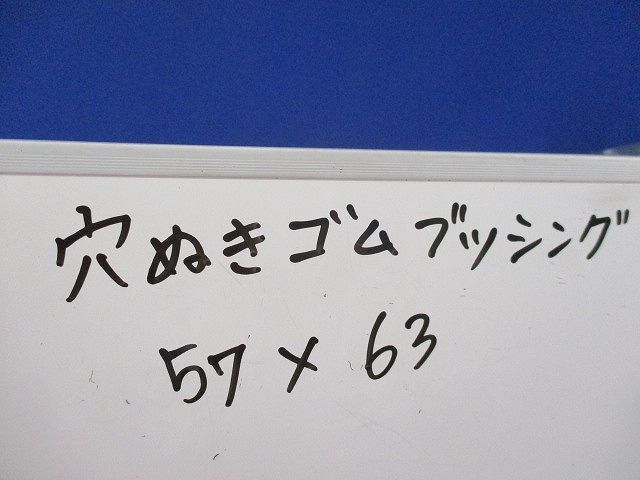 穴ぬきゴムブッシング
57×63